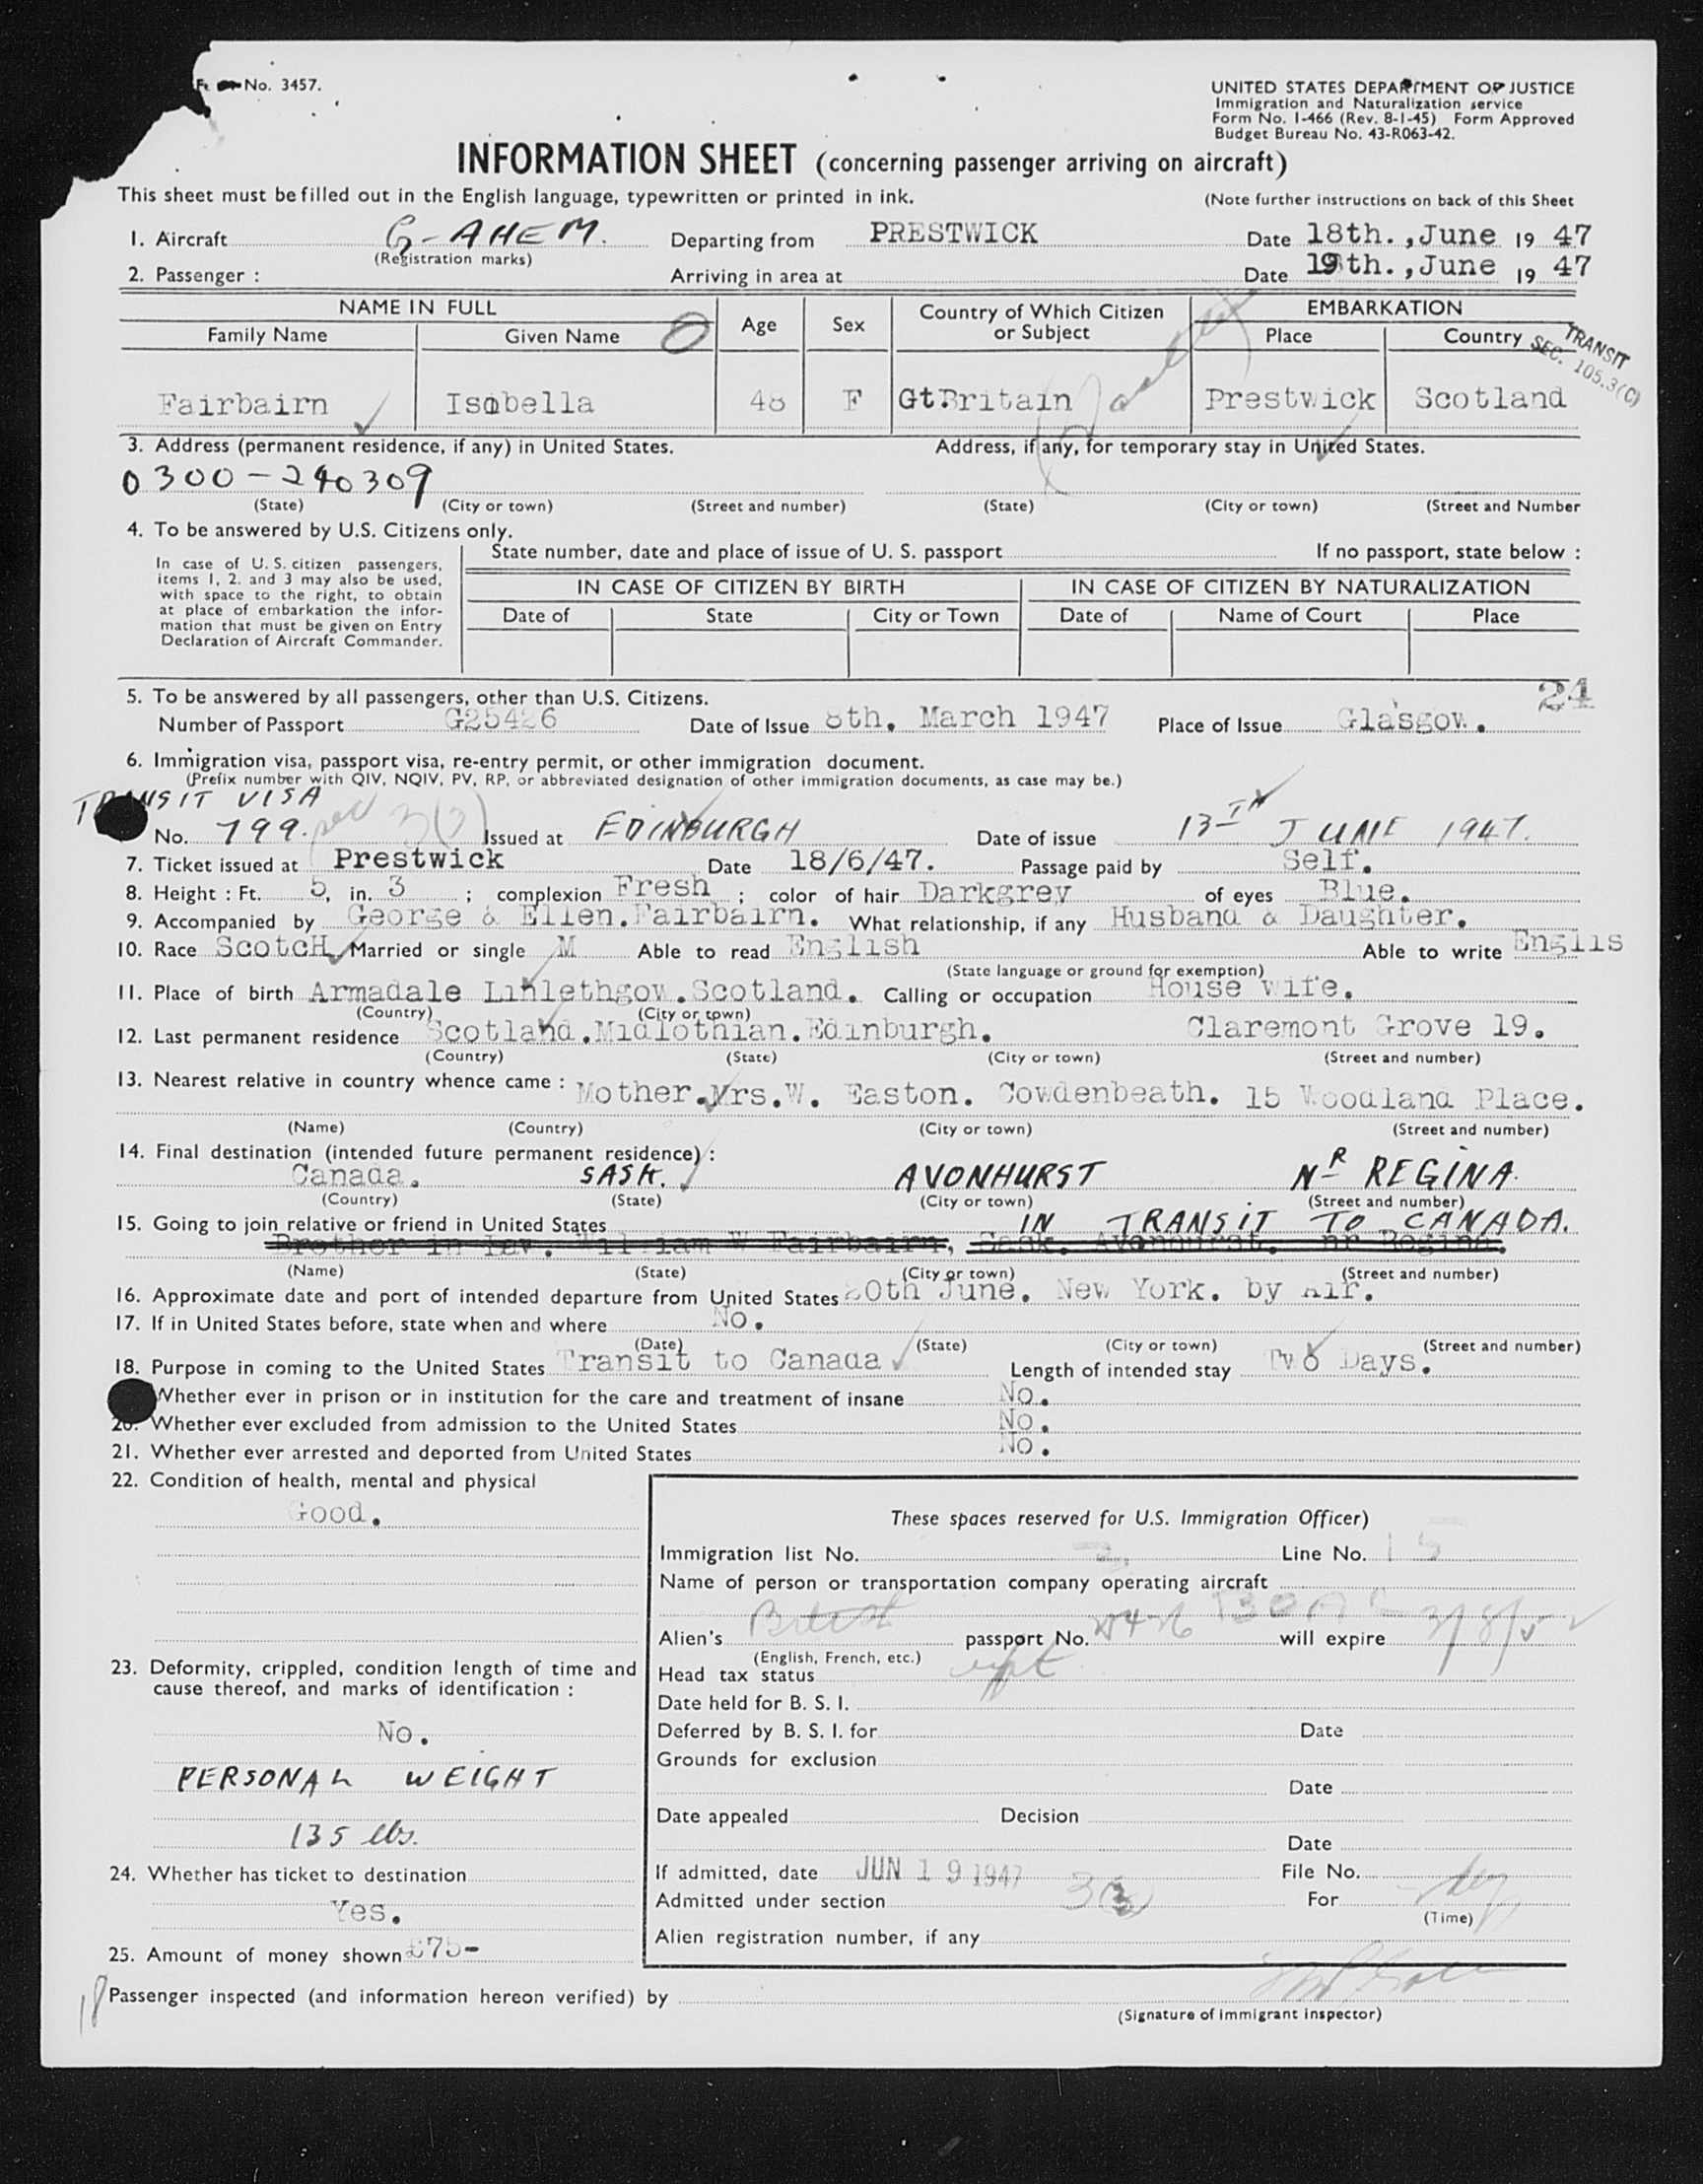 No. 3457.
UNITED STATES DEPARTMENT OF JUSTICE
Immigration and Naturalization service
Form No. I-466 (Rev. 8-1-45) Form Approved
Budget Bureau No. 43-R063-42.
INFORMATION SHEET (concerning passenger arriving on aircraft)
This sheet must be filled out in the English language, typewritten or printed in ink. (Note further instructions on back of this Sheet
1. Aircraft G-AHEM. Departing from PRESTWICK Date 18th.,June 19 47
(Registration marks)
2. Passenger : Arriving in area at Date 19th.,June 19 47
NAME IN FULL Age Sex Country of Which Citizen or Subject EMBARKATION
Family Name Given Name Place Country
TRANSIT
SEC. 105.3(C)
Fairbairn Isabella 48 F GtBritain Prestwick Scotland
3. Address (permanent residence, if any) in United States. Address, if any, for temporary stay in United States.
0300-240309
(State) (City or town) (Street and number) (State) (City or town) (Street and Number
4. To be answered by U.S. Citizens only.
State number, date and place of issue of U. S. passport If no passport, state below :
In case of U. S. citizen passengers,
items 1, 2. and 3 may also be used,
with space to the right, to obtain
at place of embarkation the infor-
mation that must be given on Entry
Declaration of Aircraft Commander.
IN CASE OF CITIZEN BY BIRTH IN CASE OF CITIZEN BY NATURALIZATION
Date of State City or Town Date of Name of Court Place
24
5. To be answered by all passengers, other than U.S. Citizens.
Number of Passport G25426 Date of Issue 8th. March 1947 Place of Issue Glasgow.
6. Immigration visa, passport visa, re-entry permit, or other immigration document.
(Prefix number with QIV, NQIV, PV, RP, or abbreviated designation of other immigration documents, as case may be.)
TRANSIT VISA
No. 799. Issued at EDINBURGH Date of issue 13TH JUNE 1947.
7. Ticket issued at Prestwick Date 18/6/47. Passage paid by Self.
8. Height : Ft. 5, in. 3 ; complexion Fresh ; color of hair Darkgrey of eyes Blue.
9. Accompanied by George & Ellen.Fairbairn. What relationship, if any Husband & Daughter.
10. Race ScotcH Married or single M Able to read English Able to write Englis
(State language or ground for exemption)
11. Place of birth Armadale Linlethgow.Scotland. Calling or occupation House wife.
(Country) (City or town)
12. Last permanent residence Scotland.Midlothian.Edinburgh. Claremont Grove 19.
(Country) (State) (City or town) (Street and number)
13. Nearest relative in country whence came : Mother.Mrs.W. Easton. Cowdenbeath. 15 Woodland Place.
(Name) (Country) (City or town) (Street and number)
14. Final destination (intended future permanent residence) :
Canada. SASK. AVONHURST NR REGINA.
(Country) (State) (City or town) (Street and number)
15. Going to join relative or friend in United States IN TRANSIT TO CANADA.
Brother in Law. William W Fairbairn, Sask. Avonhurst. nr Regina.
(Name) (State) (City or town) (Street and number)
16. Approximate date and port of intended departure from United States 20th June. New York. by Air.
17. If in United States before, state when and where No.
(Date) (State) (City or town) (Street and number)
18. Purpose in coming to the United States Transit to Canada Length of intended stay Two Days.
Whether ever in prison or in institution for the care and treatment of insane No.
20. Whether ever excluded from admission to the United States No.
21. Whether ever arrested and deported from United States No.
22. Condition of health, mental and physical
Good.
These spaces reserved for U.S. Immigration Officer)
Immigration list No. Line No. 15
Name of person or transportation company operating aircraft
BOAC
Alien's British passport No. will expire 3/8/52
(English, French, etc.)
Head tax status
Date held for B. S. I.
Deferred by B. S. I. for Date
Grounds for exclusion
Date
Date appealed Decision
Date
If admitted, date JUN 19 1947 File No.
Admitted under section 3(3) For
(Time)
Alien registration number, if any
23. Deformity, crippled, condition length of time and
cause thereof, and marks of identification :
No.
PERSONAL WEIGHT
135 lbs.
24. Whether has ticket to destination
Yes.
25. Amount of money shown £75-
Passenger inspected (and information hereon verified) by
(Signature of Immigrant Inspector)